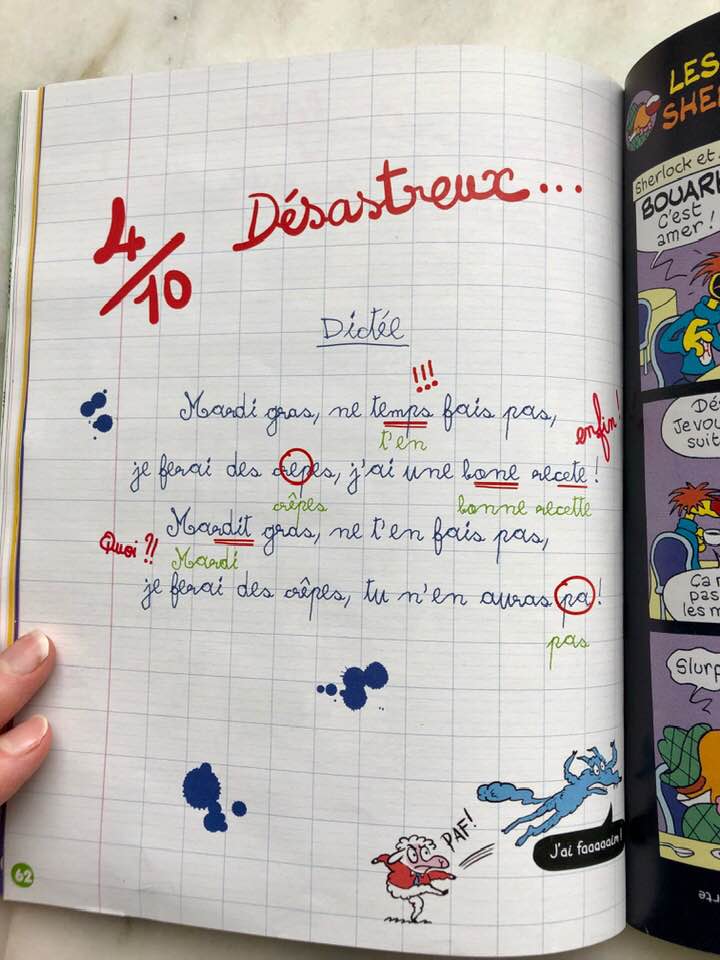 4/10
Désastreux...
Dictée
!!!
Mardi gras, ne temps fais pas,
enfin!
t'en
je ferai des crêpes, j'ai une bone recete !
crêpes bonne recette
Mardit gras, ne t'en fais pas,
Quoi ?!
Mardi
je ferai des crêpes, tu n'en auras pa !
pas
PAF!
J'ai faaaaaim !
62
LES
SHE
Sherlock et
BOUAR
C'est
amer !
Je vou
suit
Ça
pas
les m
Slurp